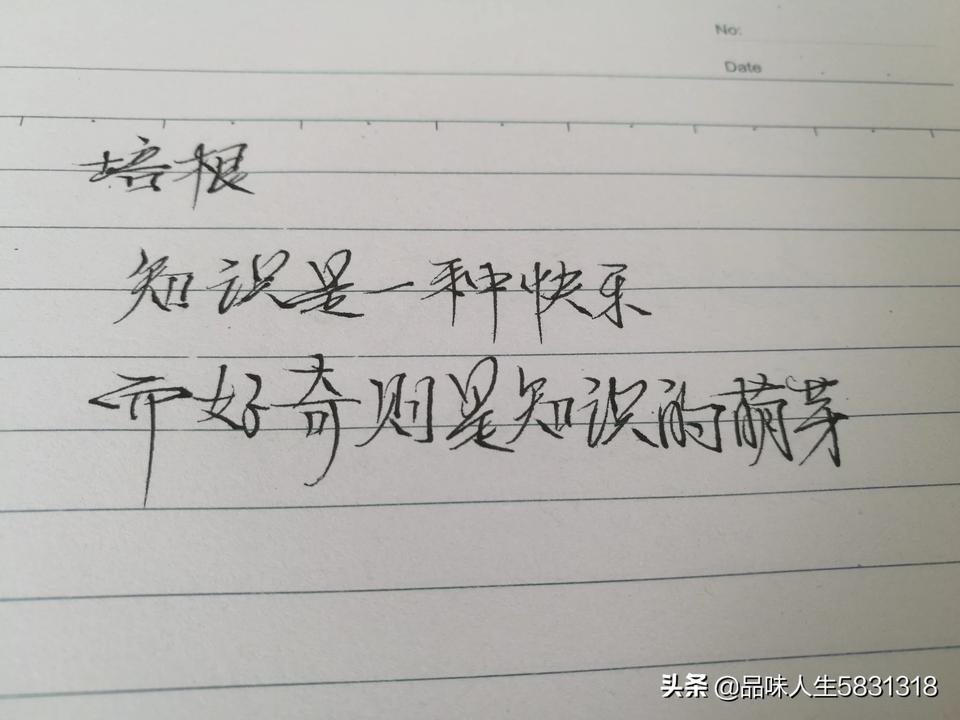 No:
Date
培根
知识是一种快乐
而好奇则是知识的萌芽
头条 @品味人生5831318